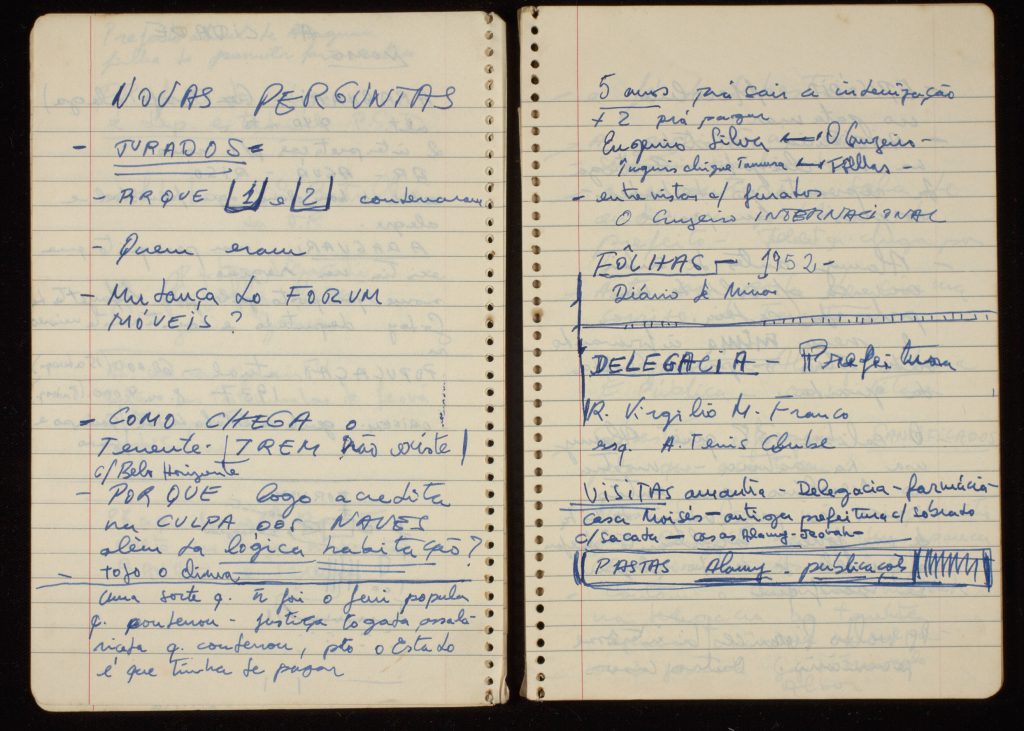 NOVAS PERGUNTAS
- JURADOS =
- PORQUE 1 e 2 condenaram
- Quem eram
- Mudança do FORUM
MÓVEIS?
- COMO CHEGA o
Tenente - TREM não existe
c/ Belo Horizonte
- POR QUE logo acredita
na CULPA DOS NAVES
além da lógica habitação?
todo o clima
uma sorte q. ñ foi o juri popular
q. condenou - justiça togada assala-
riada q. condenou, pto o Estado
é que tinha de pagar
5 anos prá sair a indenização
+ 2 prá pagar
Eugênio Silva ← O Cruzeiro -
← Folhas -
- entrevistas c/ jurados
O Cruzeiro INTERNACIONAL
FÔLHAS - 1952 -
Diário de Minas
DELEGACIA - Prefeitura
R. Virgilio M. Franco
esq. A. Tenis Clube
VISITAS amanhã - Delegacia - farmácia -
casa Moisés - antiga prefeitura c/ sobrado
c/ sacada - casas Alamy -
PASTAS Alamy - publicações